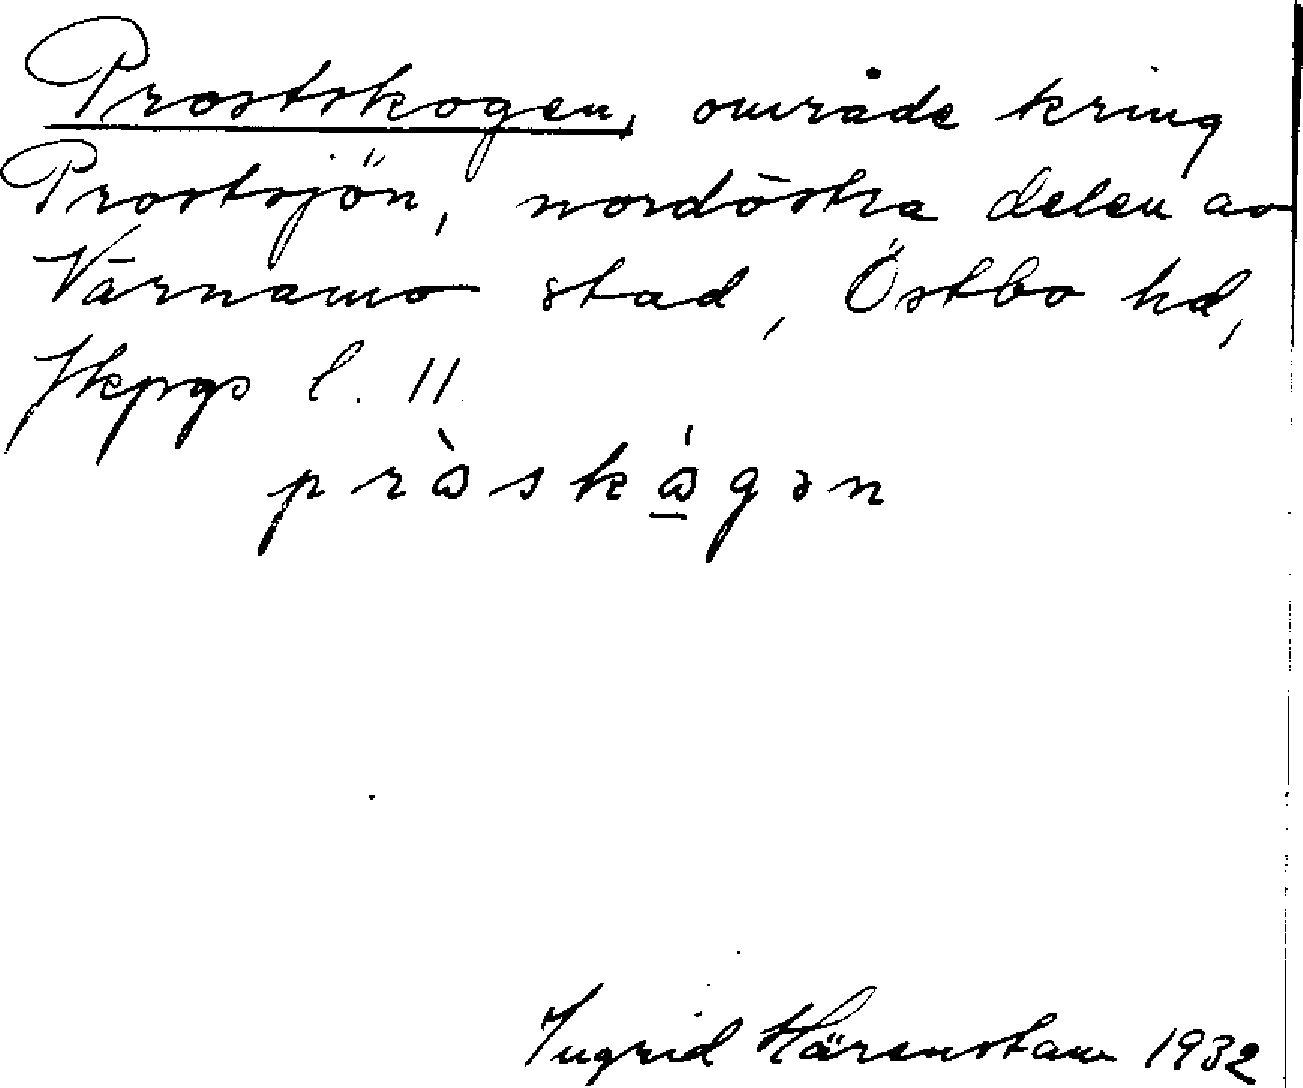 Prostskogen, område kring
Prostsjön, nordöstra delen av
Värnamo stad, Östbo hd,
Jkpgs l. 11
pròskǻgən
Ingrid Härenstam 1932